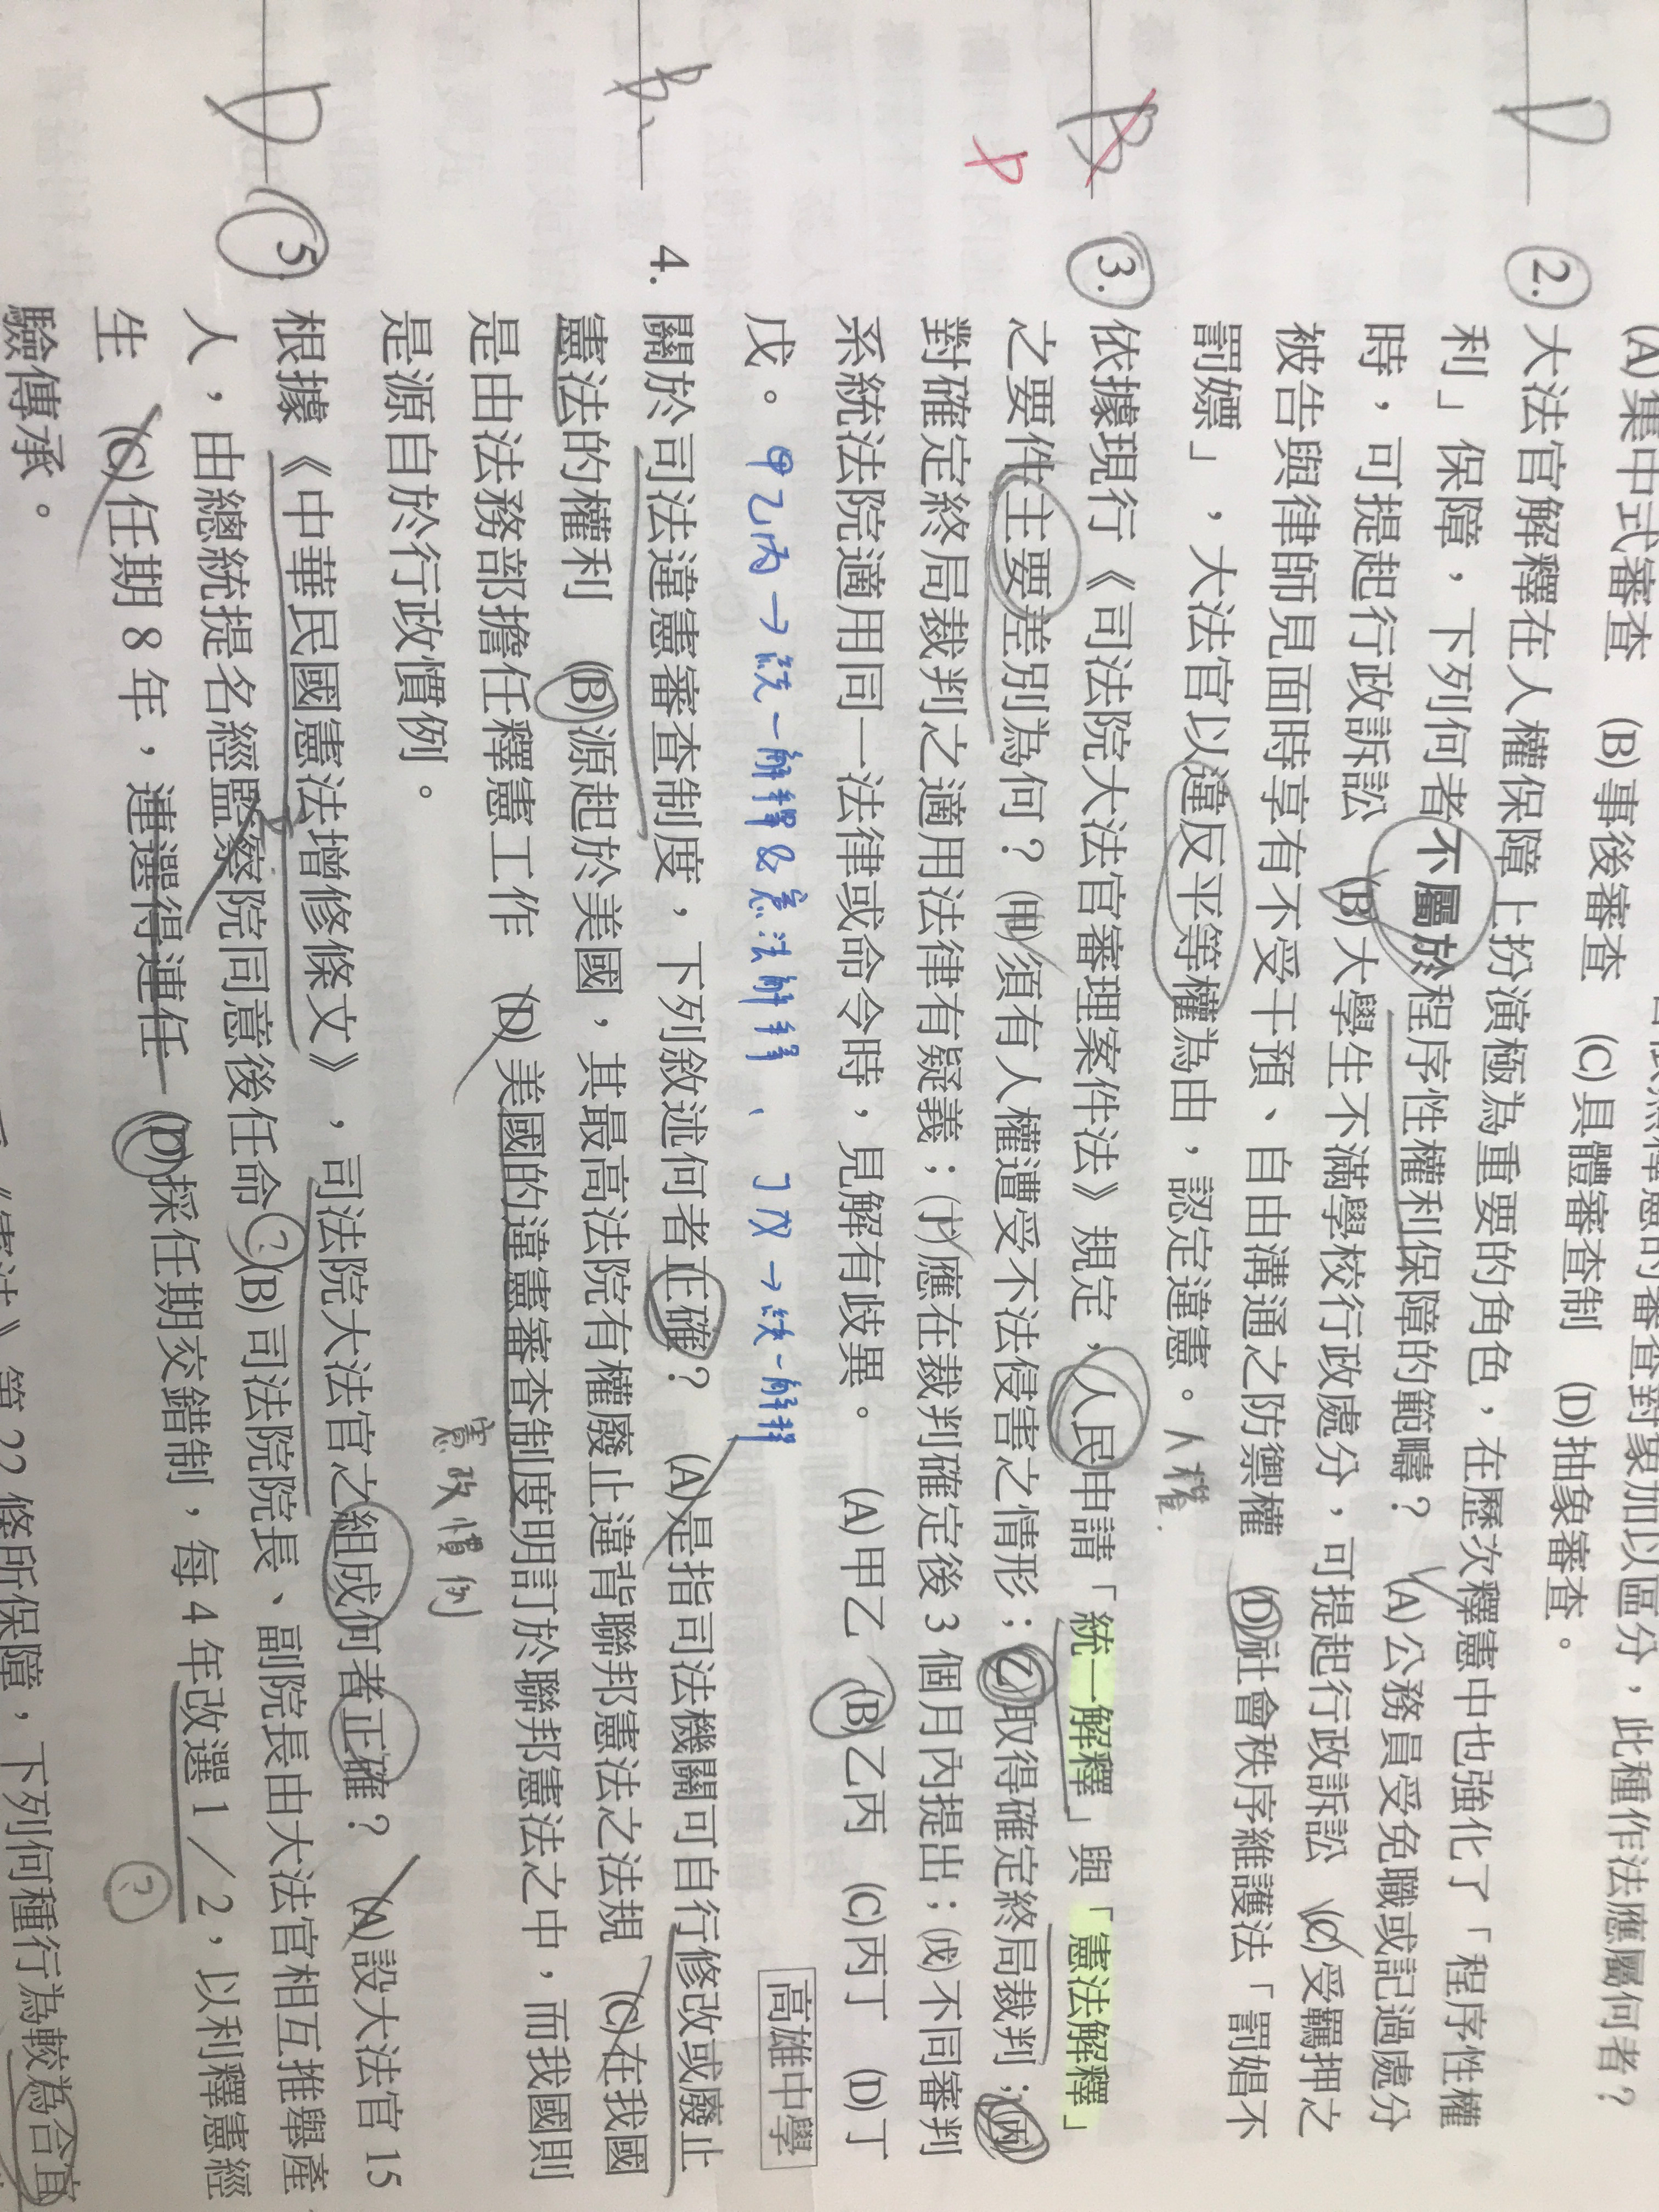 (A)集中式審查 (B)事後審查 (C)具體審查制 (D)抽象審查。
審查對象加以區分，此種作法應屬何者？
D
2. 大法官解釋在人權保障上扮演極為重要的角色，在歷次釋憲中也強化了「程序性權
利」保障，下列何者不屬於程序性權利保障的範疇？ (A)公務員受免職或記過處分
時，可提起行政訴訟 (B)大學生不滿學校行政處分，可提起行政訴訟 (C)受羈押之
被告與律師見面時享有不受干預、自由溝通之防禦權 (D)社會秩序維護法「罰娼不
罰嫖」，大法官以違反平等權為由，認定違憲。
人權
B
D
3. 依據現行《司法院大法官審理案件法》規定，人民申請「統一解釋」與「憲法解釋」
之要件主要差別為何？(甲)須有人權遭受不法侵害之情形；(乙)取得確定終局裁判；(丙)
對確定終局裁判之適用法律有疑義；(丁)應在裁判確定後3個月內提出；(戊)不同審判
系統法院適用同一法律或命令時，見解有歧異。 (A)甲乙 (B)乙丙 (C)丙丁 (D)丁
戊。
高雄中學
甲乙丙→統一解釋&憲法解釋、丁戊→統一解釋
B
4. 關於司法違憲審查制度，下列敘述何者正確？ (A)是指司法機關可自行修改或廢止
憲法的權利 (B)源起於美國，其最高法院有權廢止違背聯邦憲法之法規 (C)在我國
是由法務部擔任釋憲工作 (D)美國的違憲審查制度明訂於聯邦憲法之中，而我國則
是源自於行政慣例。
憲政慣例
D
5. 根據《中華民國憲法增修條文》，司法院大法官之組成何者正確？ (A)設大法官15
人，由總統提名經監察院同意後任命 ? (B)司法院院長、副院長由大法官相互推舉產
生 (C)任期8年，連選得連任 (D)採任期交錯制，每4年改選1／2，以利釋憲經
驗傳承。
?
《憲法》第22條所保障，下列何種行為較為合宜